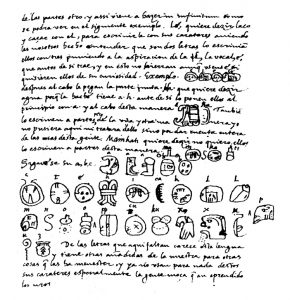 de las partes otro, y assi viene a hazer in infinitum como
se podra ver en el siguiente exemplo. Le, quiere dezir laço
y caçar con el, para escrivirle con sus carateres aviendo
les nosotros hecho entender que son dos letras lo escrivian
ellos con tres puniendo a la aspiracion de la l, la vocal e,
que antes de si trae, y en esto no hierran aunq
quisieren ellos de su curiosidad. Exemplo.
despues al cabo le pegan la parte junta. Ha que quiere dezir
agua porq la hache tiene a. h. ante de si lo ponen ellos al
principio con a y al cabo desta manera Tambie
lo escriven a partes de la una y otra manera, yo
no pusiera aqui ni tratara dello sino por dar cuenta entera
de las cosas desta gente. Mainkati quiere dezir no quiero ellos
lo escriven a partes desta manera
Siguese su a, b, c.
De las letras que aqui faltan carece esta lengua
y tiene otras añadidas de la nuestra para otras
cosas q las ha menester, y ya no usan para nada destos
sus carateres especialmente la gente moça q an aprendido
los nros